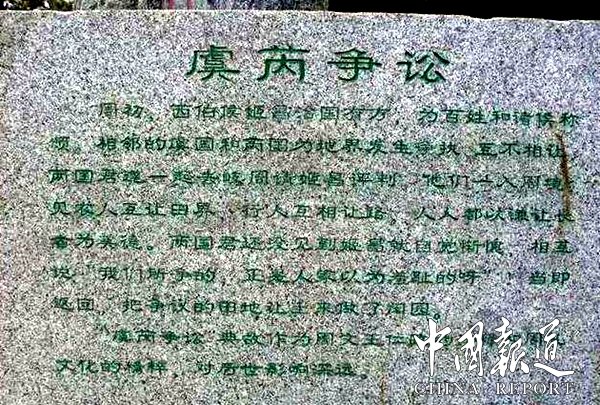 虞芮争讼
周初，西伯侯姬昌治国有方，为百姓和诸侯称
颂。相邻的虞国和芮国为地界发生争执，互不相让，
两国君遂一起去岐周请姬昌评判，他们一入周境，
见农人互让田界，行人互相让路，人人都以谦让长
者为美德。两国君还没见到姬昌就自觉惭愧，相互
说“我们所争的，正是人家以为羞耻的呀”！当即
返回，把争议的田地让出来做了闲园。
“虞芮争讼”典故作为周文王仁
文化的精粹，对后世影响深远。
中国報道
CHINA REPORT